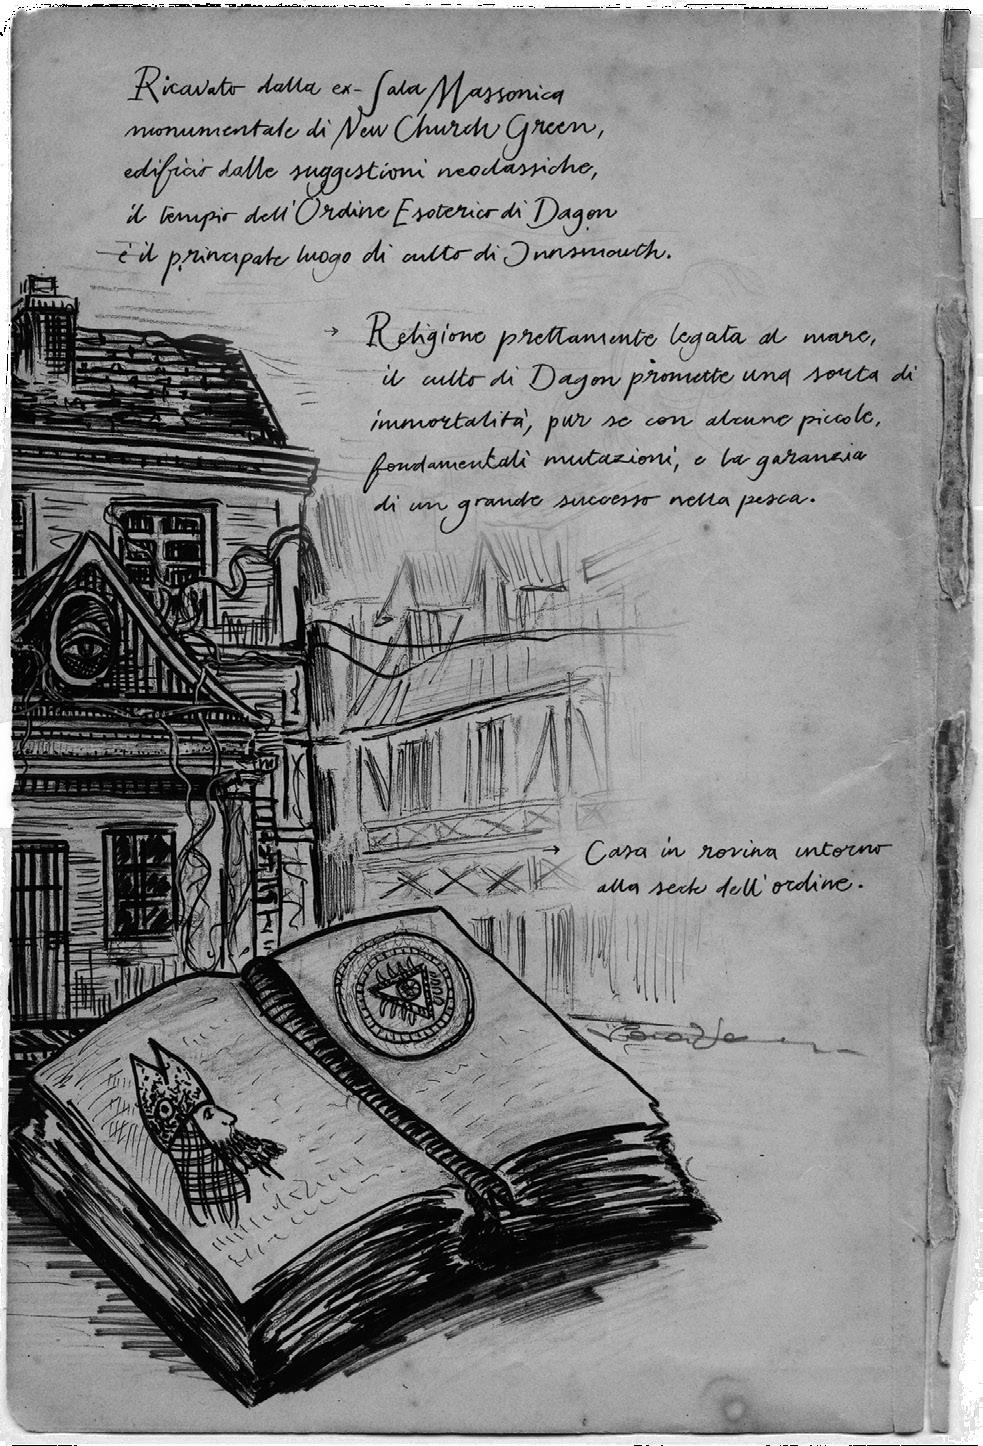 Ricavato dalla ex-Sala Massonica
monumentale di New Church Green,
edificio dalle suggestioni neoclassiche,
il tempio dell'Ordine Esoterico di Dagon
è il principale luogo di culto di Innsmouth.
→ Religione prettamente legata al mare,
il culto di Dagon promette una sorta di
immortalità, pur se con alcune piccole,
fondamentali mutazioni, e la garanzia
di un grande successo nella pesca.
→ Casa in rovina intorno
alla sede dell'ordine.